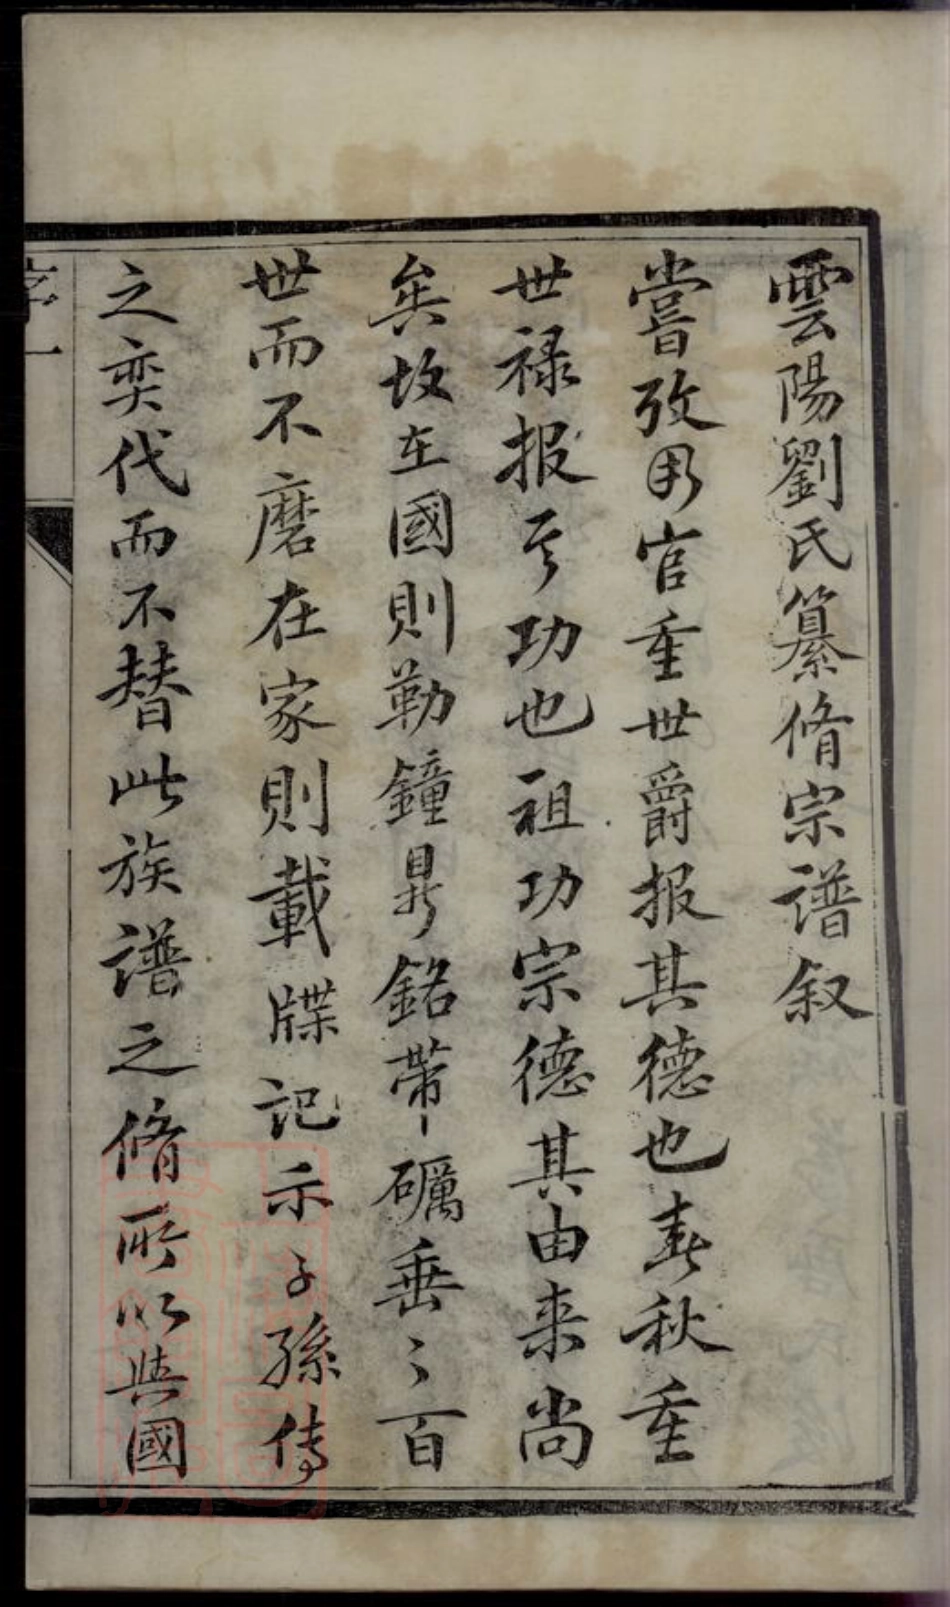 雲陽劉氏纂脩宗譜叙
嘗攷周官重世爵报其德也春秋重
世禄报其功也祖功宗德其由来尚
矣故在國則勒鐘鼎銘帶礪垂之百
世而不磨在家則載牒記示子孫傳
之奕代而不替此族譜之脩所以與國
序一